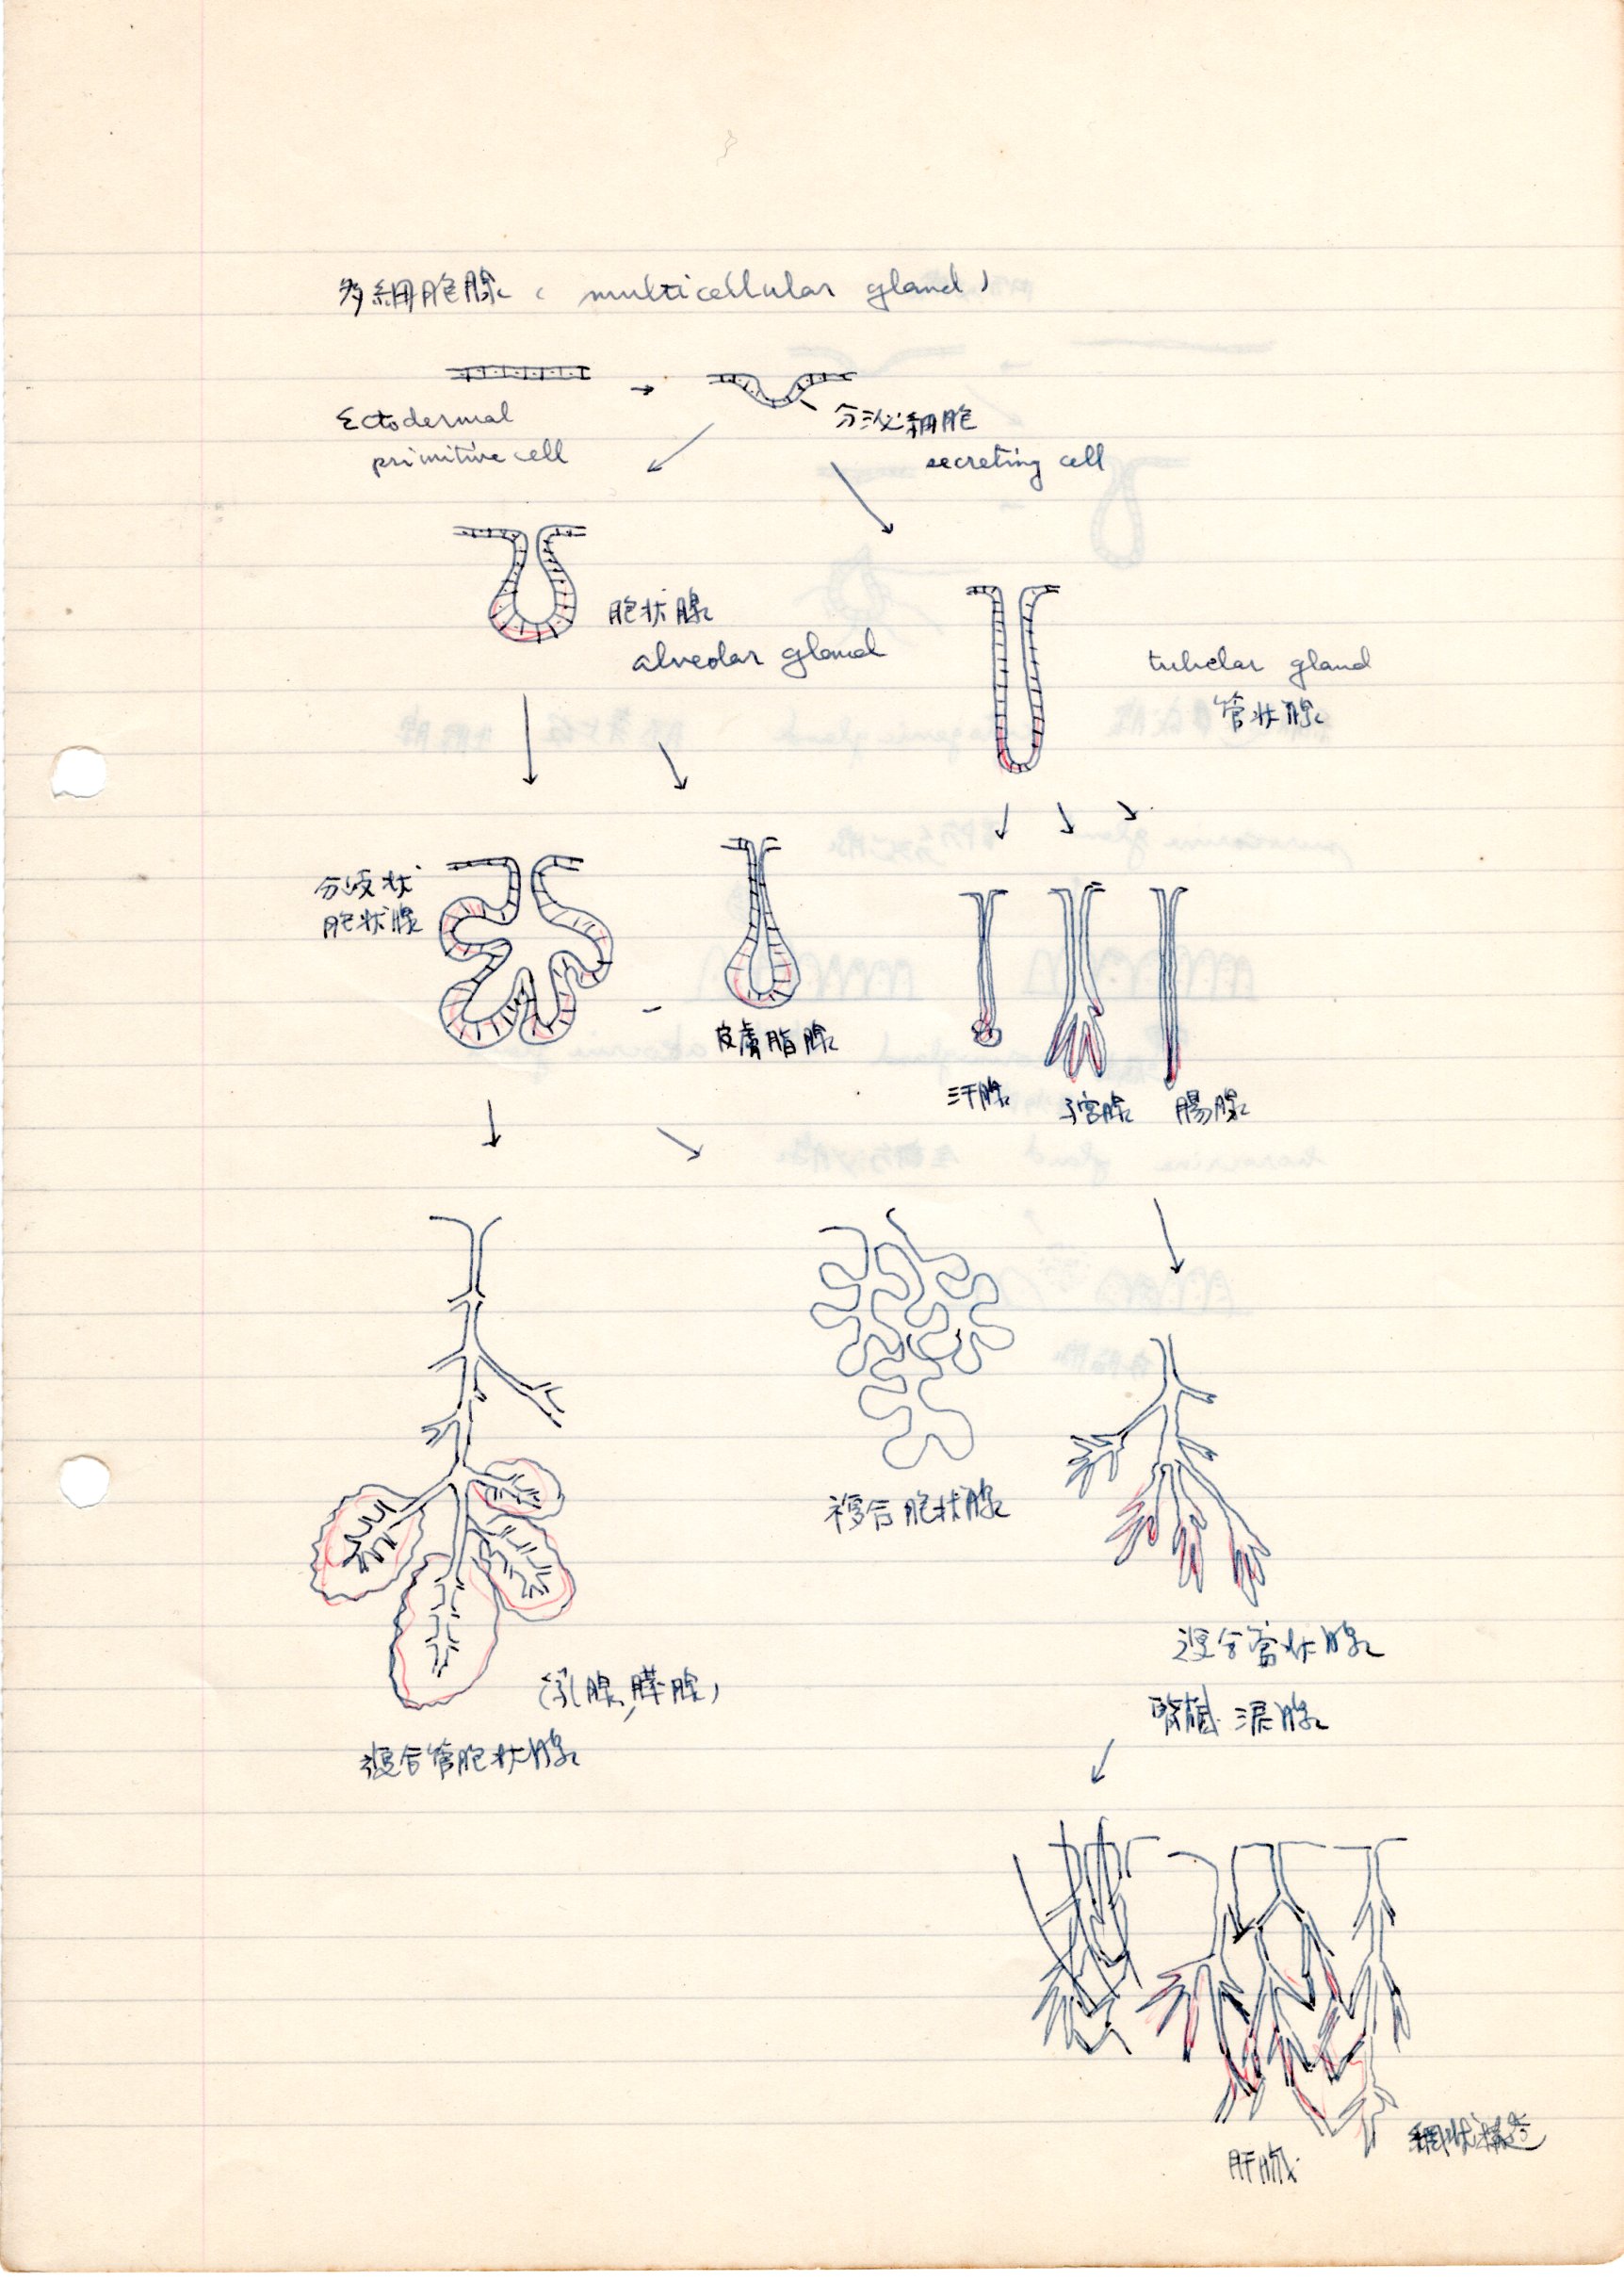 多細胞腺 (multicellular gland)
Ectodermal
primitive cell
分泌細胞
secreting cell
胞状腺
alveolar gland
tubular gland
管状腺
分岐状
胞状腺
皮膚脂腺
汗腺
子宮腺
腸腺
複合胞状腺
(乳腺, 膵腺)
複合管胞状腺
複合管状腺
腎臓 涙腺
肝臓
網状構造